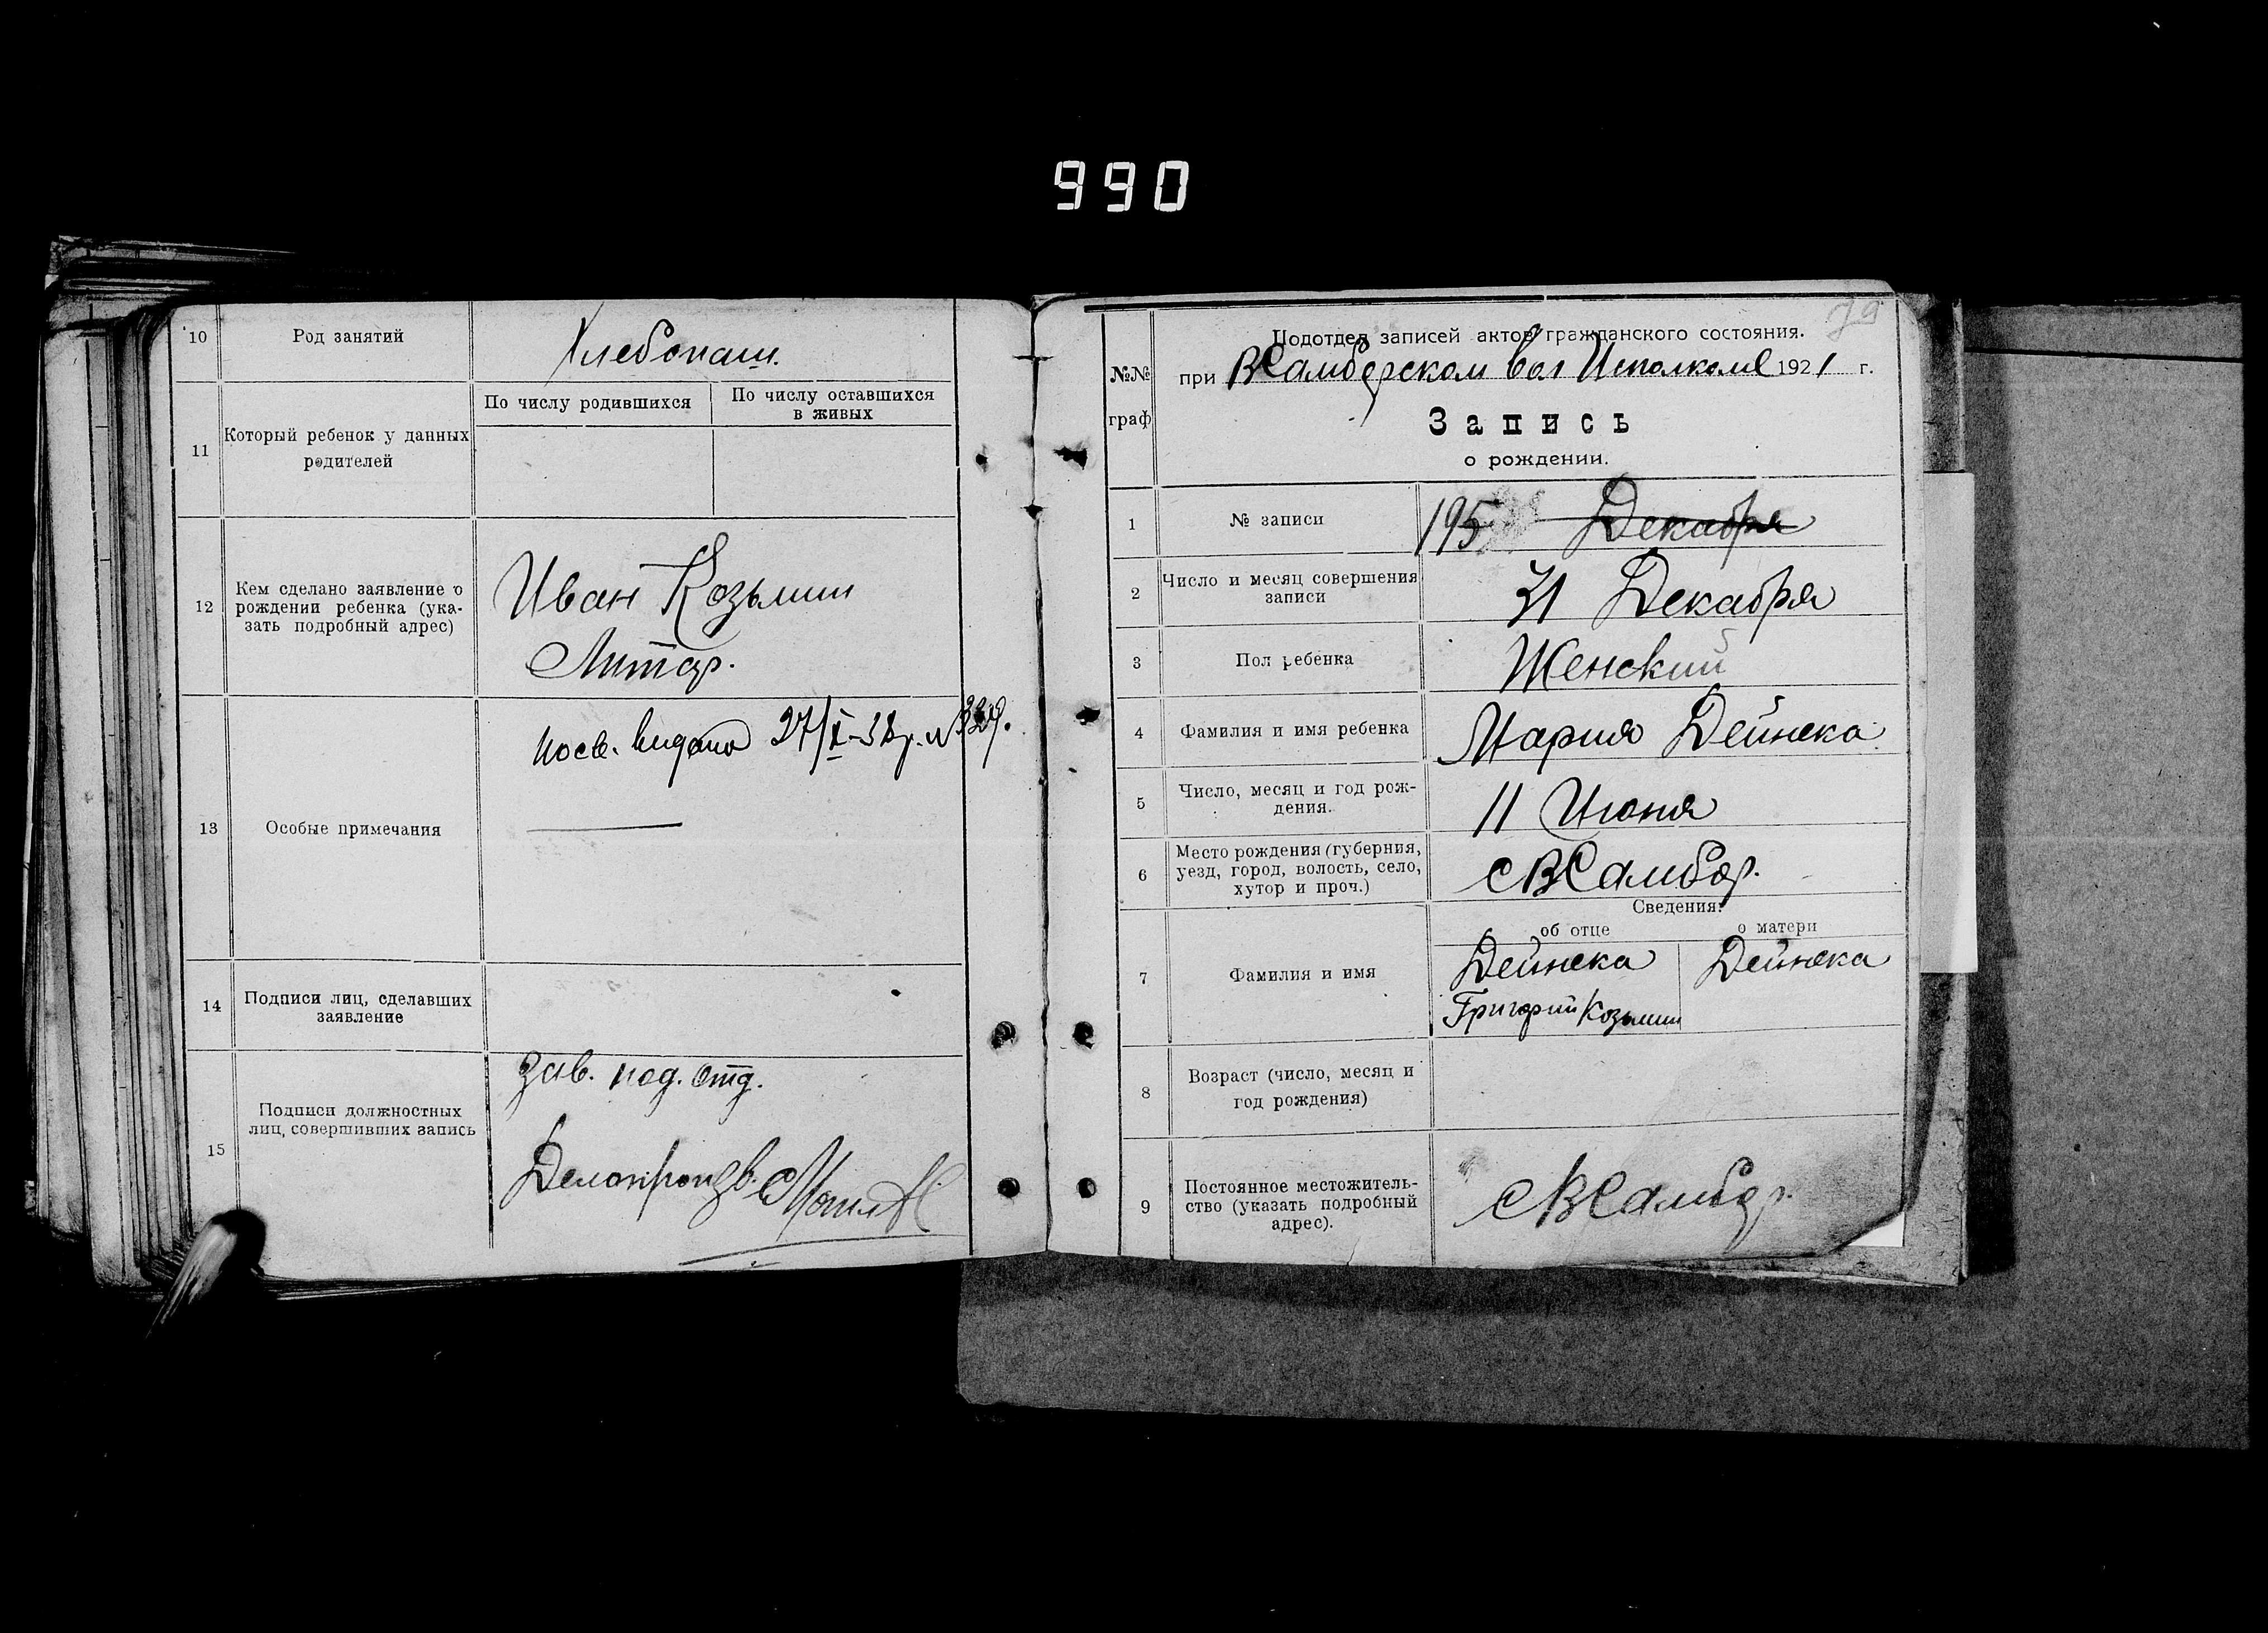 990
10 Род занятий Хлебопаш.
11 Который ребенок у данных родителей
По числу родившихся
По числу оставшихся
в живых
12 Кем сделано заявление о
рождении ребенка (ука-
зать подробный адрес)
Иван Козьмин
Литар.
13 Особые примечания
посв. видано 27/X-38р. №
14 Подписи лиц, сделавших
заявление
15 Подписи должностных
лиц, совершивших запись
Зав. под. отд.
Делопроизв.
79
№№
граф
Подотдел записей актов гражданского состояния.
при ВСамборском вол Исполкоме 1921 г.
Запись
о рождении.
1 № записи 195 Декабря
2 Число и месяц совершения
записи
31 Декабря
3 Пол ребенка Женский
4 Фамилия и имя ребенка Мария Дейнека
5 Число, месяц и год рож-
дения.
11 Июня
6 Место рождения (губерния,
уезд, город, волость, село,
хутор и проч.)
с ВСамбор.
Сведения:
об отце о матери
7 Фамилия и имя
Дейнека Дейнека
Григорий Козьмин
8 Возраст (число, месяц и
год рождения)
9 Постоянное местожитель-
ство (указать подробный
адрес).
с ВСамбор.